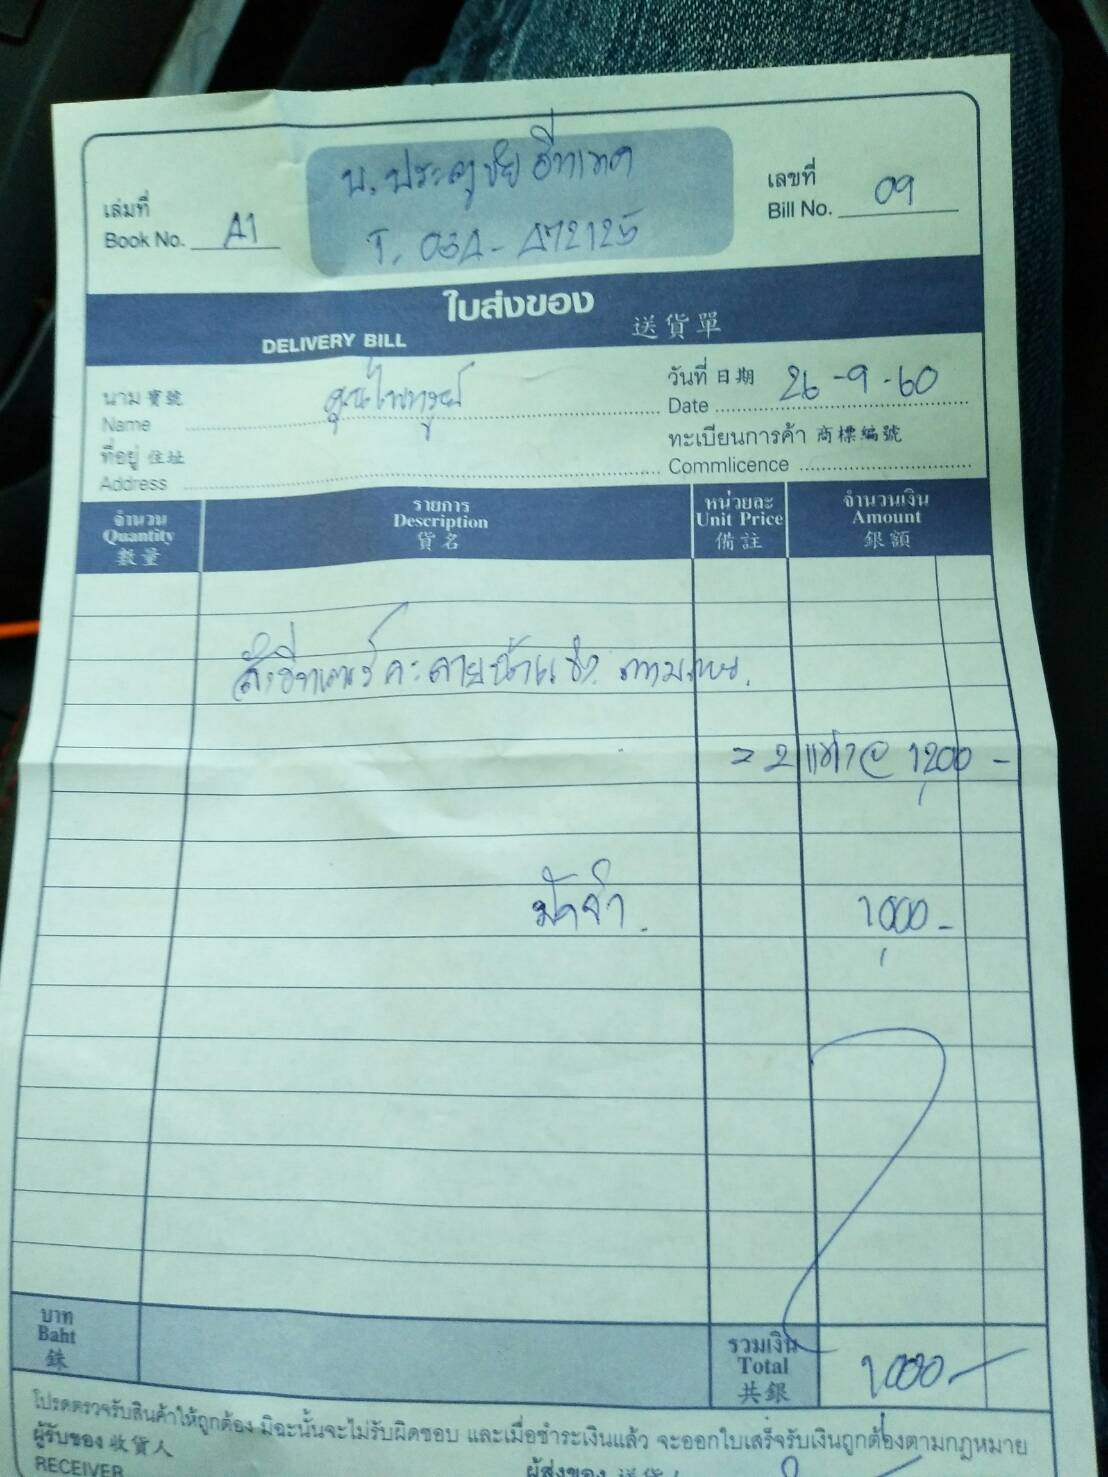 บ. ประดุชัย ฮีทเทค
เล่มที่
Book No. A1
T. 034-472125
เลขที่
Bill No. 09
ใบส่งของ
DELIVERY BILL 送貨單
นาม 寶號
Name คุณไพฑูรย์
วันที่ 日期
Date 26-9-60
ที่อยู่ 住址
Address
ทะเบียนการค้า 商標編號
Commlicence
จำนวน
Quantity
數量
รายการ
Description
貨名
หน่วยละ
Unit Price
備註
จำนวนเงิน
Amount
銀額
สั่งฮีทเตอร์
= 2 แท่ง @ 1,200 -
มัดจำ. 1,000 -
บาท
Baht
銖
รวมเงิน
Total
共銀
1,000 -
โปรดตรวจรับสินค้าให้ถูกต้อง มิฉะนั้นจะไม่รับผิดชอบ และเมื่อชำระเงินแล้ว จะออกใบเสร็จรับเงินถูกต้องตามกฎหมาย
ผู้รับของ 收貨人
RECEIVER
ผู้ส่งของ 送貨人